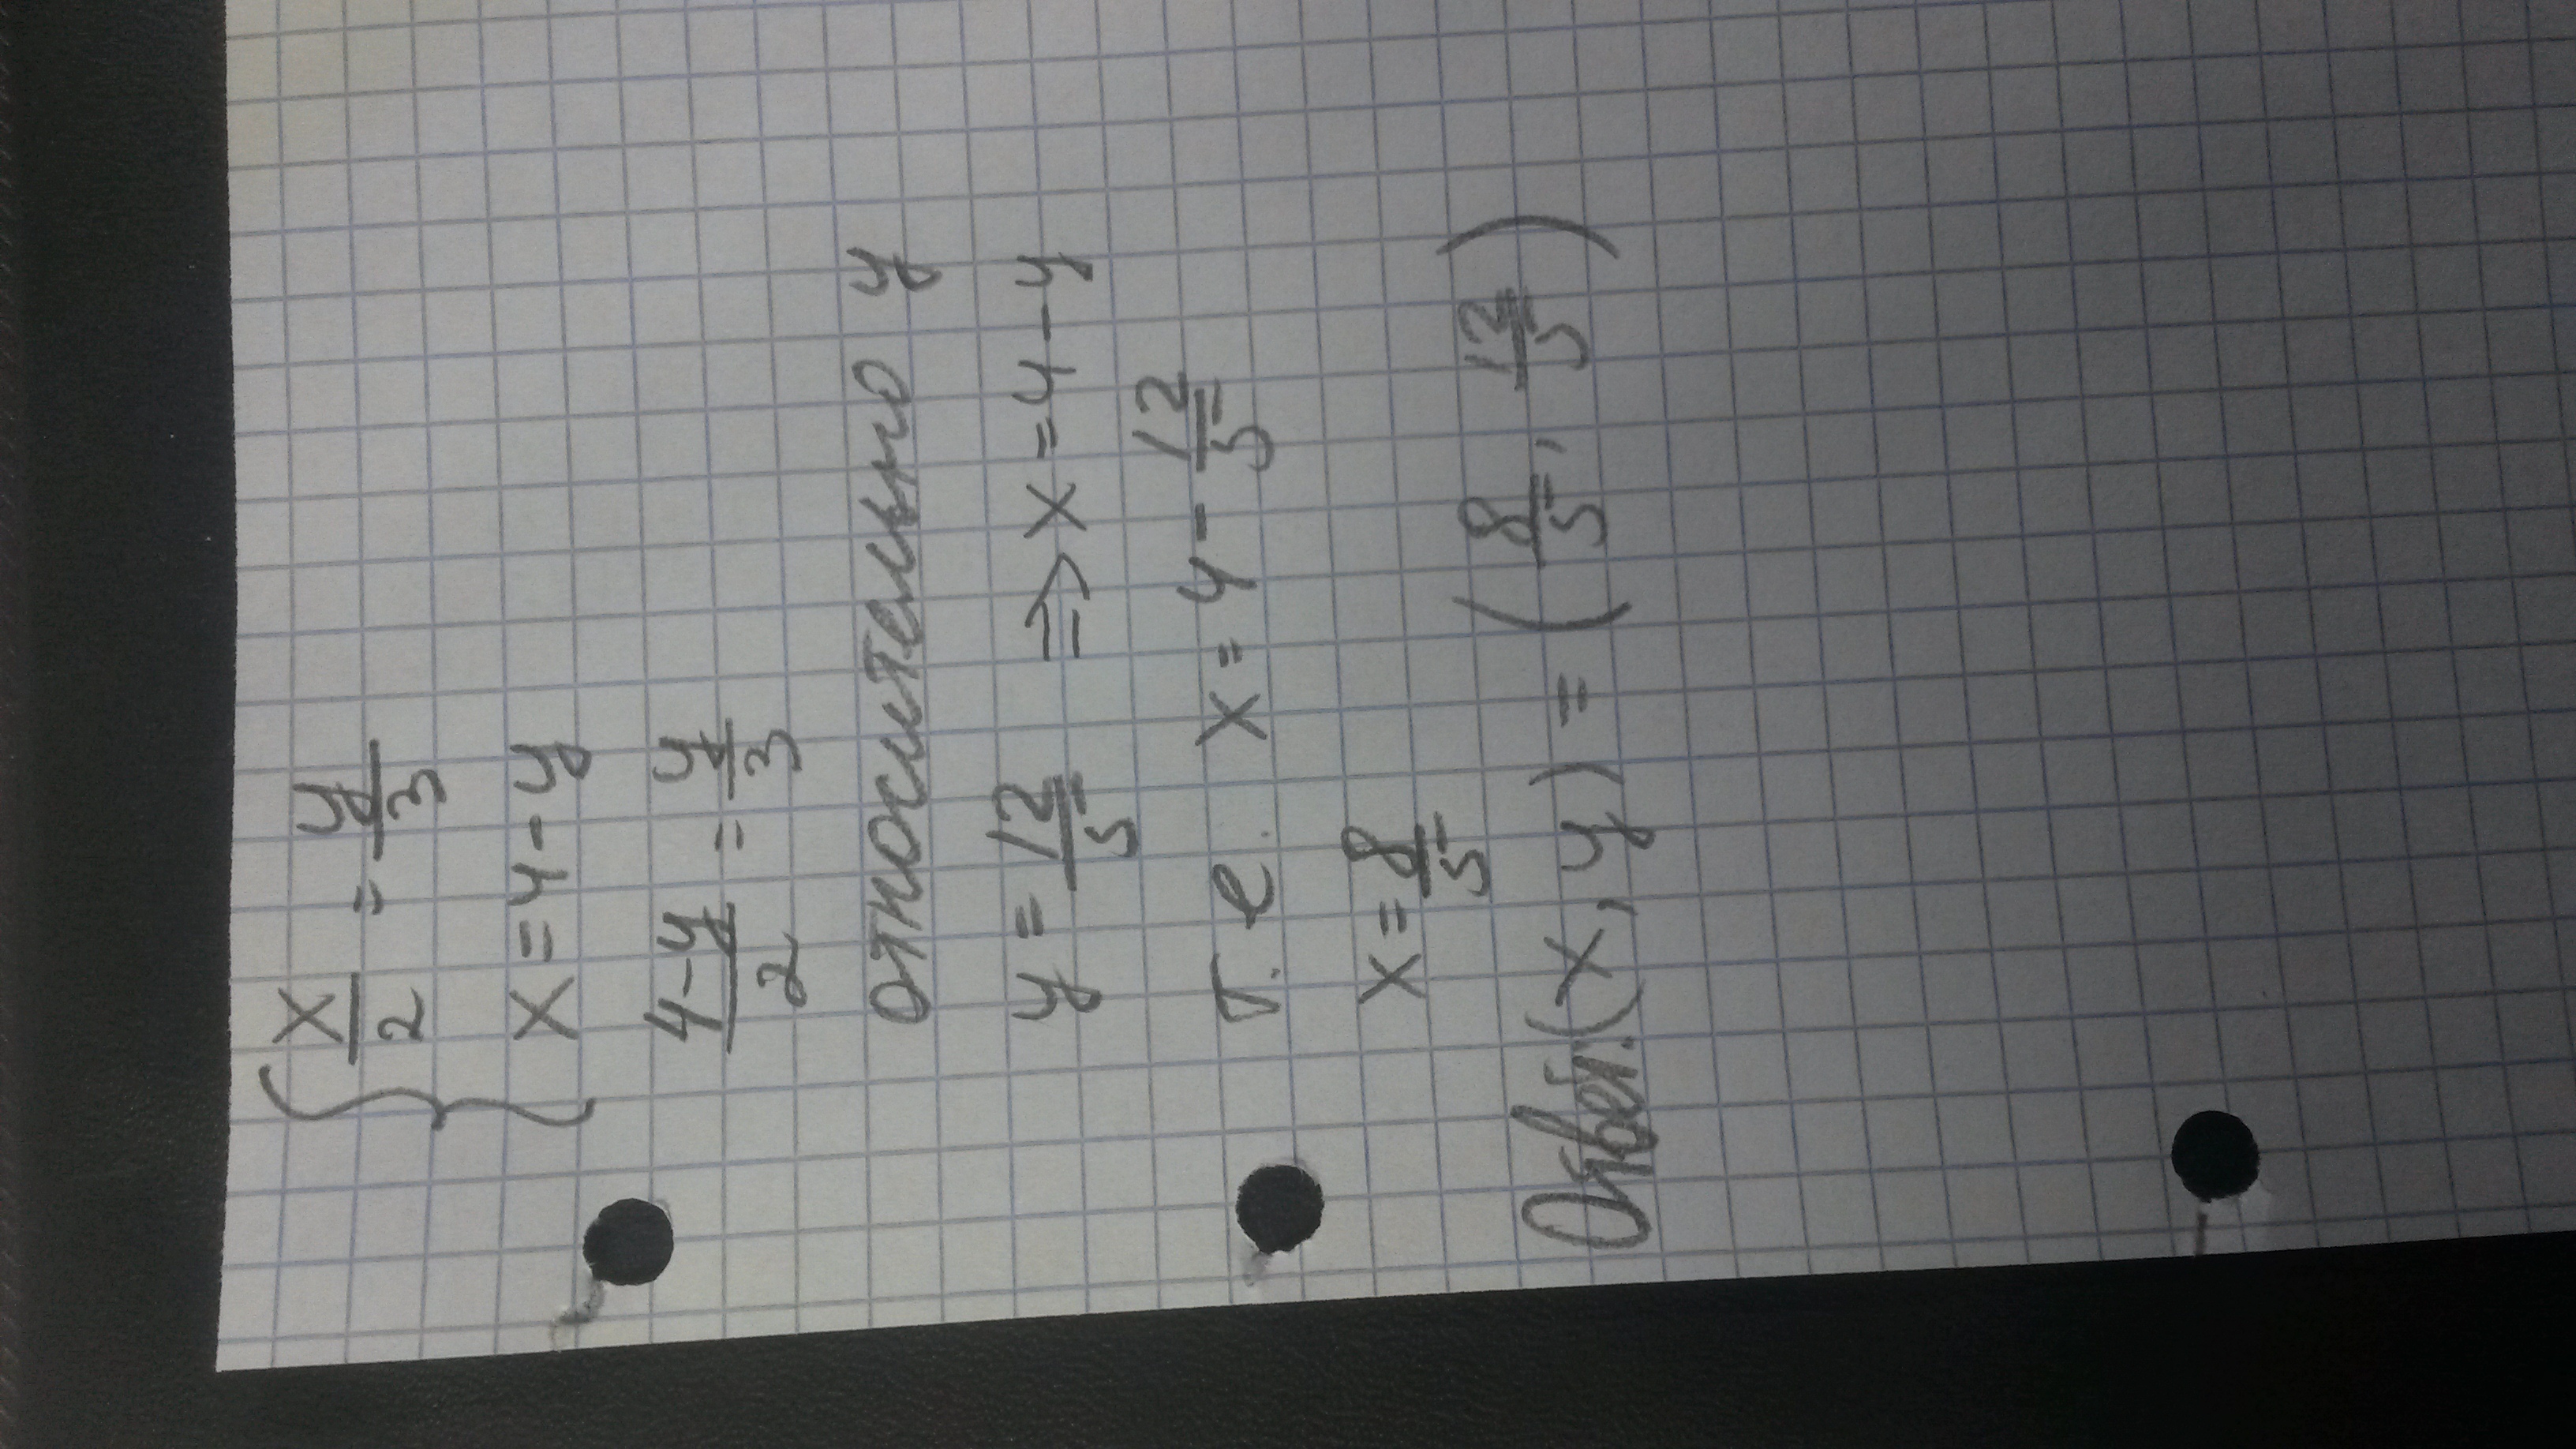 { x/2 = y/3
x = 4 - y
(4-y)/2 = y/3
относительно y
y = 12/5 => x = 4 - y
т. е. x = 4 - 12/5
x = 8/5
Ответ: (x, y) = (8/5, 12/5)